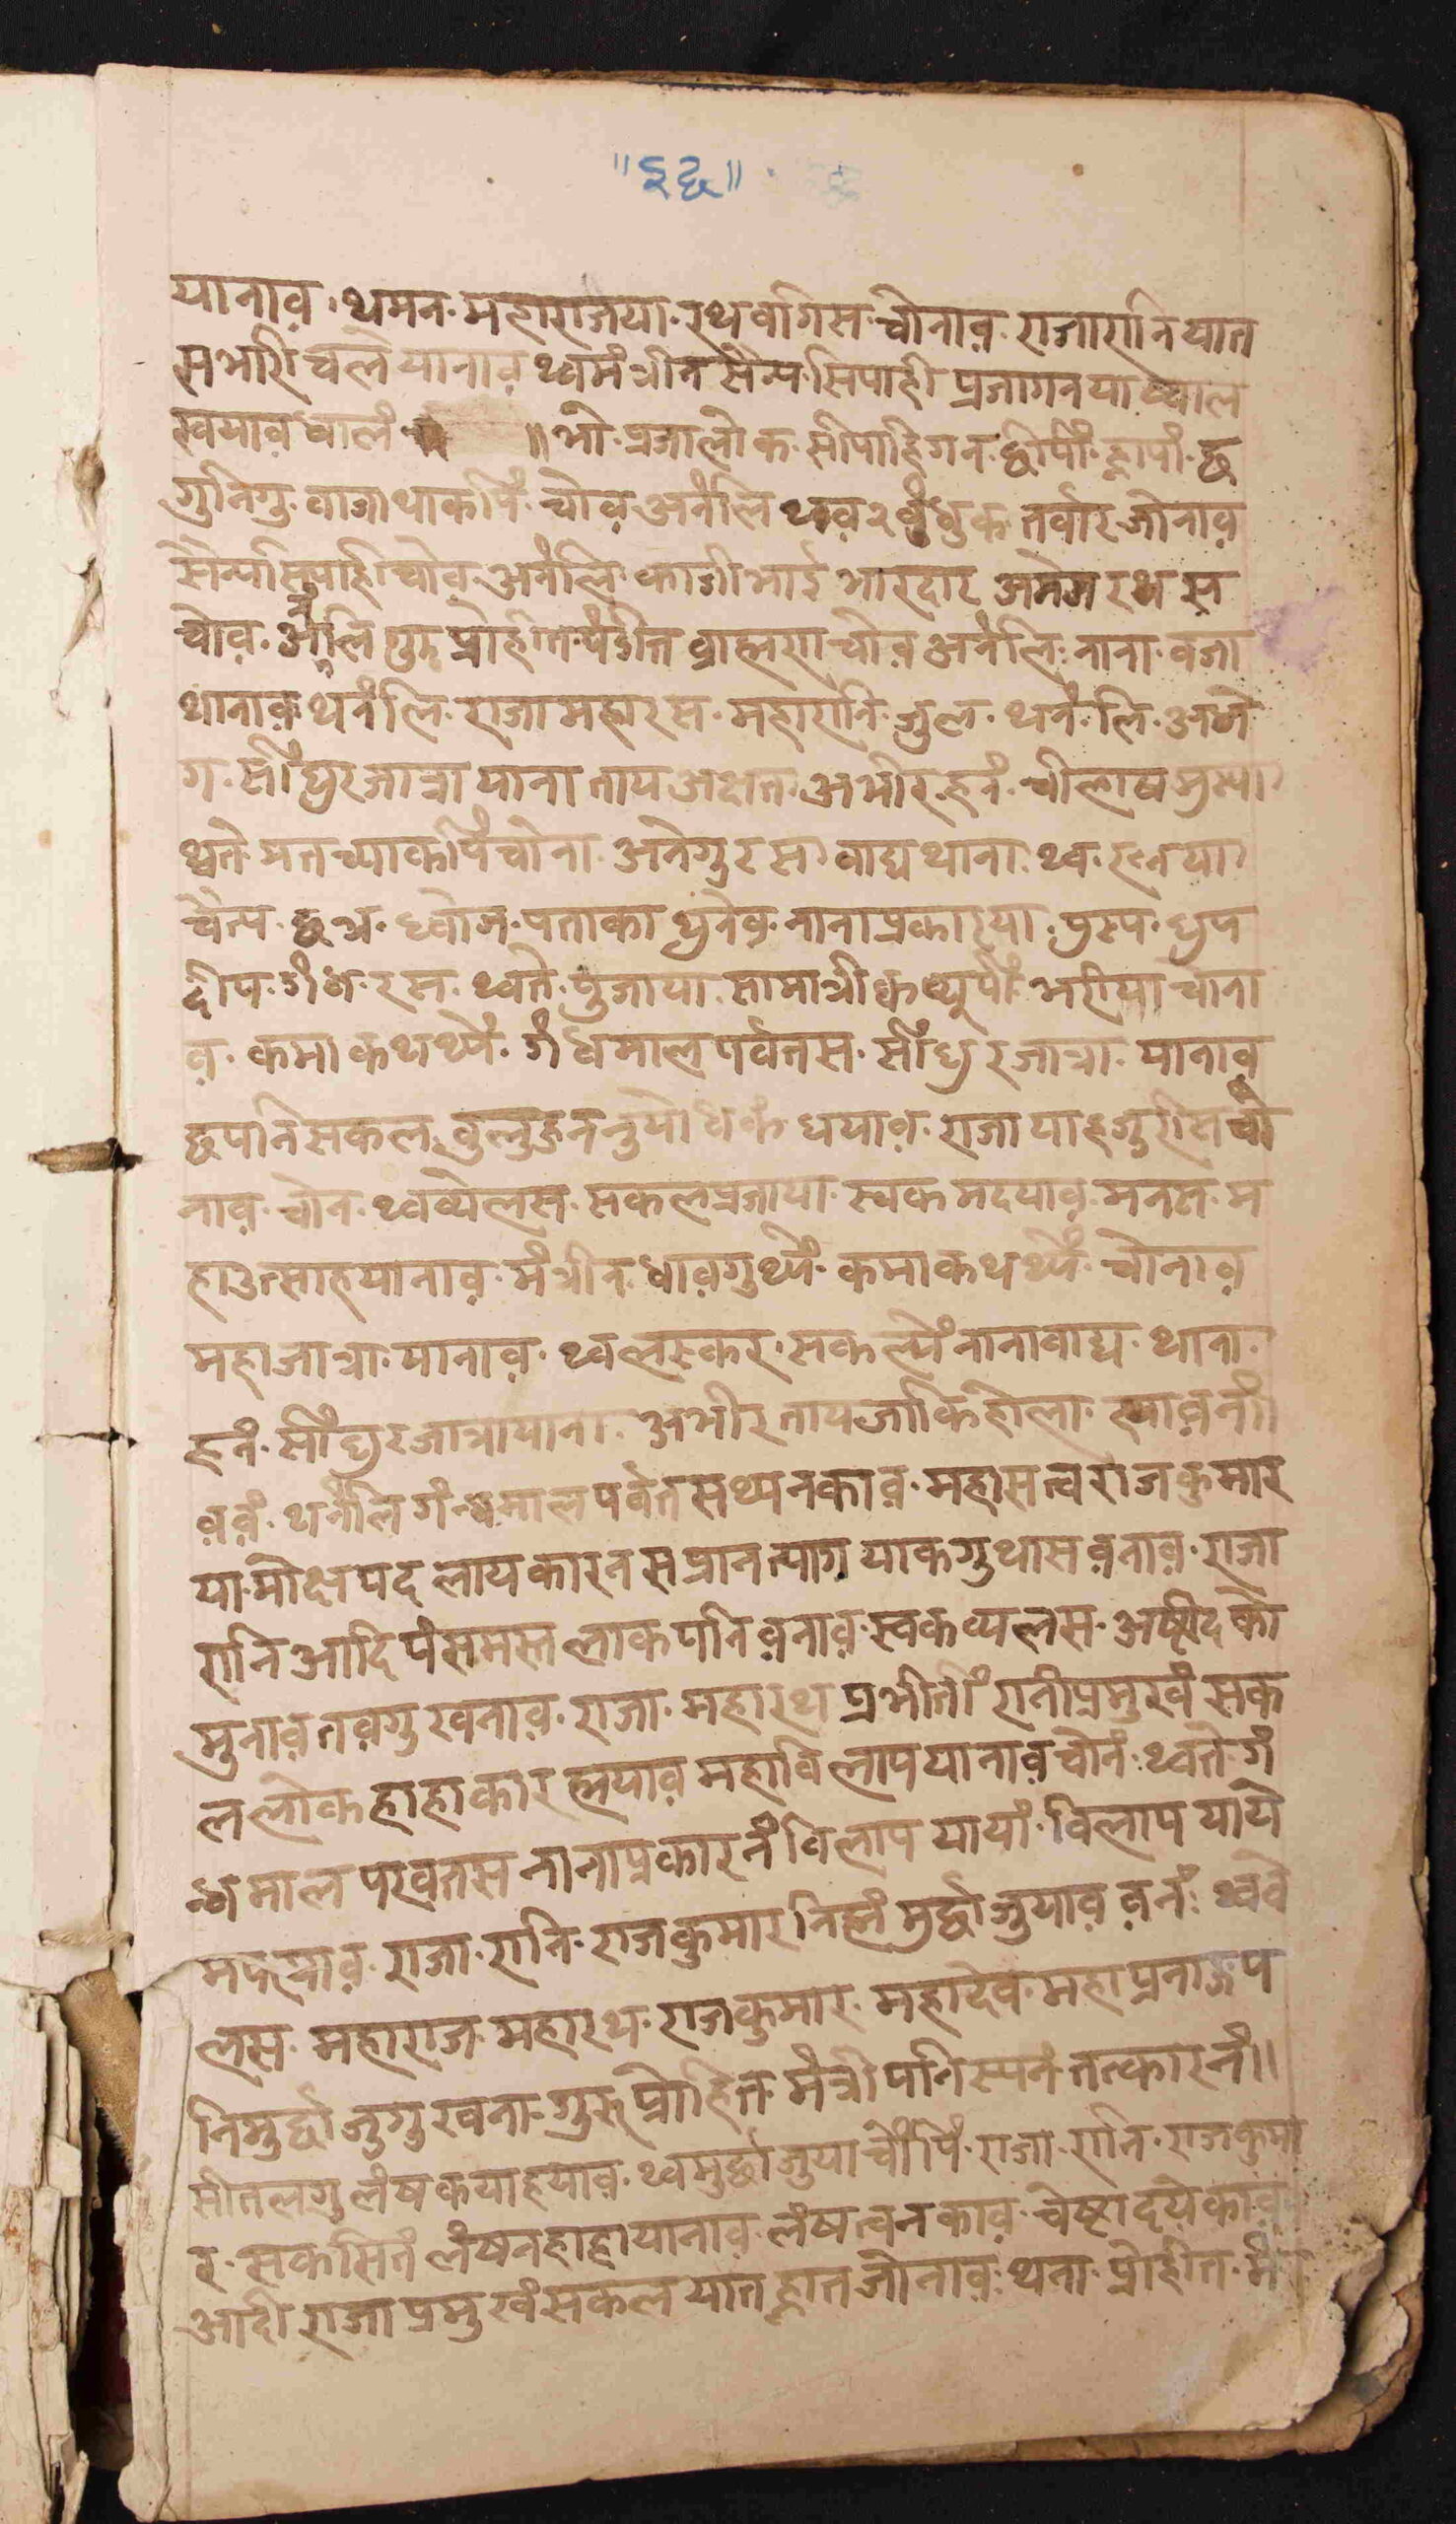 ॥३६॥
यानाव़ थमन महाराजया रथ वगिस चोनाव़ राजारानियात
सभारि चले यानाव़ थ्वमंत्रीन सैन्य सिपाही प्रजागनया ष्वाल
स्वयाव़ धालं ॥ भो प्रजालोक सीपाहिगन छीपीं ह्नापां छ
गुनिगु वाजा थाकपिं चोव़ अनंलि थव २ वंधुक तर्वार जोनाव़
सैन्यसिपाहि चोव़ अनंलि काजी भाई भारदार अमेग रथस
चोव़ अनंलि गुरु प्रोहीत पंडीत ब्राह्मण चोव़ अनंलि नाना वजा
थानाव़ थनंलि राजा महारस महारानि जुल थनंलि अने
ग सींधुर जात्रा याना ताय अक्षत अभीर हनं चीलाष
थ्वते मत च्याकपिं चोना अनेगु रस वाद्य थाना थ्व
चैत्य छत्र ध्वाज पताका नानाप्रकारया पुस्प धुप
दीप गंध रस थ्वते पुजाया सामाग्री चोना
व़ कमाकथथ्यें गंधमाल पर्वतस सींधुर जात्रा यानाव़
छपनि सकल वुलुहन धयाव़ राजाया हजुरिस चो
नाव़ चोन थ्वव्येलस सकलप्रजाया स्वक मदयाव़ मनस म
हाउत्साह यानाव़ मंत्रीन धाव़गुथ्यें कमाकथथ्यें चोनाव़
महाजात्रा यानाव़ थ्व लस्कर सकल्यें नाना वाद्य थाना
हनं सींधुर जात्रा याना अभीर ताय जाकि होला ह्याव़नी
व़व़ं थनंलि गंन्धमाल पर्वतस थ्यनकाव़ महासत्व राजकुमार
या मोक्षपद लायकारनस प्रान त्याग याकगु थास व़नाव़ राजा
रानि आदिपं समस्त लोकपनि व़नाव़ स्वकव्यलस अष्टीदको
मुनाव़ तव़गु खनाव़ राजा महारथ प्रभीतीं रानीप्रमुखं सक
ललोक हाहाकार ह्मयाव़ महाविलाप यानाव़ चोनं थ्वते गं
न्धमाल परवतस नानाप्रकारनं विलाप यायां विलाप याये
मफयाव़ राजा रानि राजकुमार निह्मं मुर्छा जुयाव़ व़नं थ्ववे
लस महाराज महारथ राजकुमार महादेव महाप्रनाज्ञप
निमुर्छा जुगु खना गुरु प्रोहित मंत्री पनिस्यनं तत्कारनं॥
सीतलगु लंष कया हयाव़ थ्वमुर्छा जुया चोंपिं राजा रानि राजकुमा
र सकसितं लंषन हाहा यानाव़ लंष त्वनकाव़ चेष्टा दयेकाव़
आदी राजा प्रमुखं सकलयात ह्नात जोनाव़ थना प्रोहीत मं